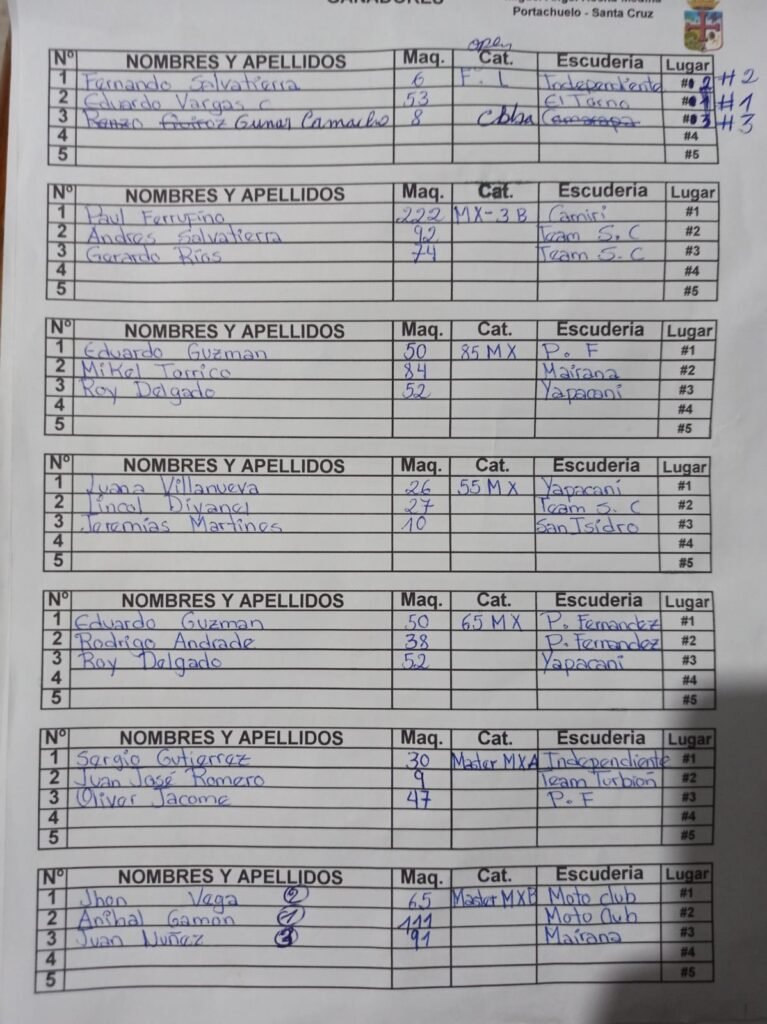 GANADORES
Portachuelo - Santa Cruz
open
Nº NOMBRES Y APELLIDOS Maq. Cat. Escuderia Lugar
1 Fernando Salvatierra 6 F. L Independiente # 2 #2
2 Eduardo Vargas C 53 El Torno #1 #1
3 Renzo Quiroz Gunar Camacho 8 Cbba Camarapa #3 #3
4 #4
5 #5
Nº NOMBRES Y APELLIDOS Maq. Cat. Escuderia Lugar
1 Paul Ferrufino 222 MX-3 B Camiri #1
2 Andres Salvatierra 92 Team S. C #2
3 Gerardo Rios 74 Team S. C #3
4 #4
5 #5
Nº NOMBRES Y APELLIDOS Maq. Cat. Escuderia Lugar
1 Eduardo Guzman 50 85 MX P. F #1
2 Mikel Torrico 84 Mairana #2
3 Roy Delgado 52 Yapacani #3
4 #4
5 #5
Nº NOMBRES Y APELLIDOS Maq. Cat. Escuderia Lugar
1 Luana Villanueva 26 55 MX Yapacani #1
2 Lincol Divanel 27 Team S. C #2
3 Jeremías Martines 10 San Isidro #3
4 #4
5 #5
Nº NOMBRES Y APELLIDOS Maq. Cat. Escuderia Lugar
1 Eduardo Guzman 50 65 MX P. Fernandez #1
2 Rodrigo Andrade 38 P. Fernandez #2
3 Roy Delgado 52 Yapacani #3
4 #4
5 #5
Nº NOMBRES Y APELLIDOS Maq. Cat. Escuderia Lugar
1 Sergio Gutierrez 30 Master MXA Independiente #1
2 Juan José Romero 9 Team Turbión #2
3 Oliver Jacome 47 P. F #3
4 #4
5 #5
Nº NOMBRES Y APELLIDOS Maq. Cat. Escuderia Lugar
1 Jhon Vega 2 65 Master MXB Moto club #1
2 Anibal Gamon 1 111 Moto Club #2
3 Juan Nuñez 3 91 Mairana #3
4 #4
5 #5